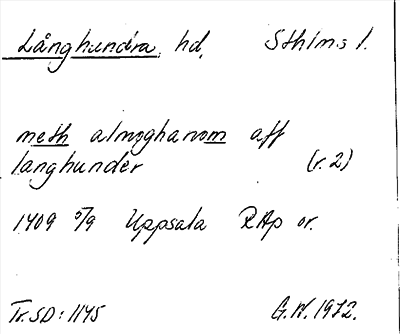 Långhundra hd, Sthlms l.
meth almoghanom aff
langhunder (r. 2)
1409 5/9 Uppsala RAp or.
Tr. SD: 1145 G.W. 1972.